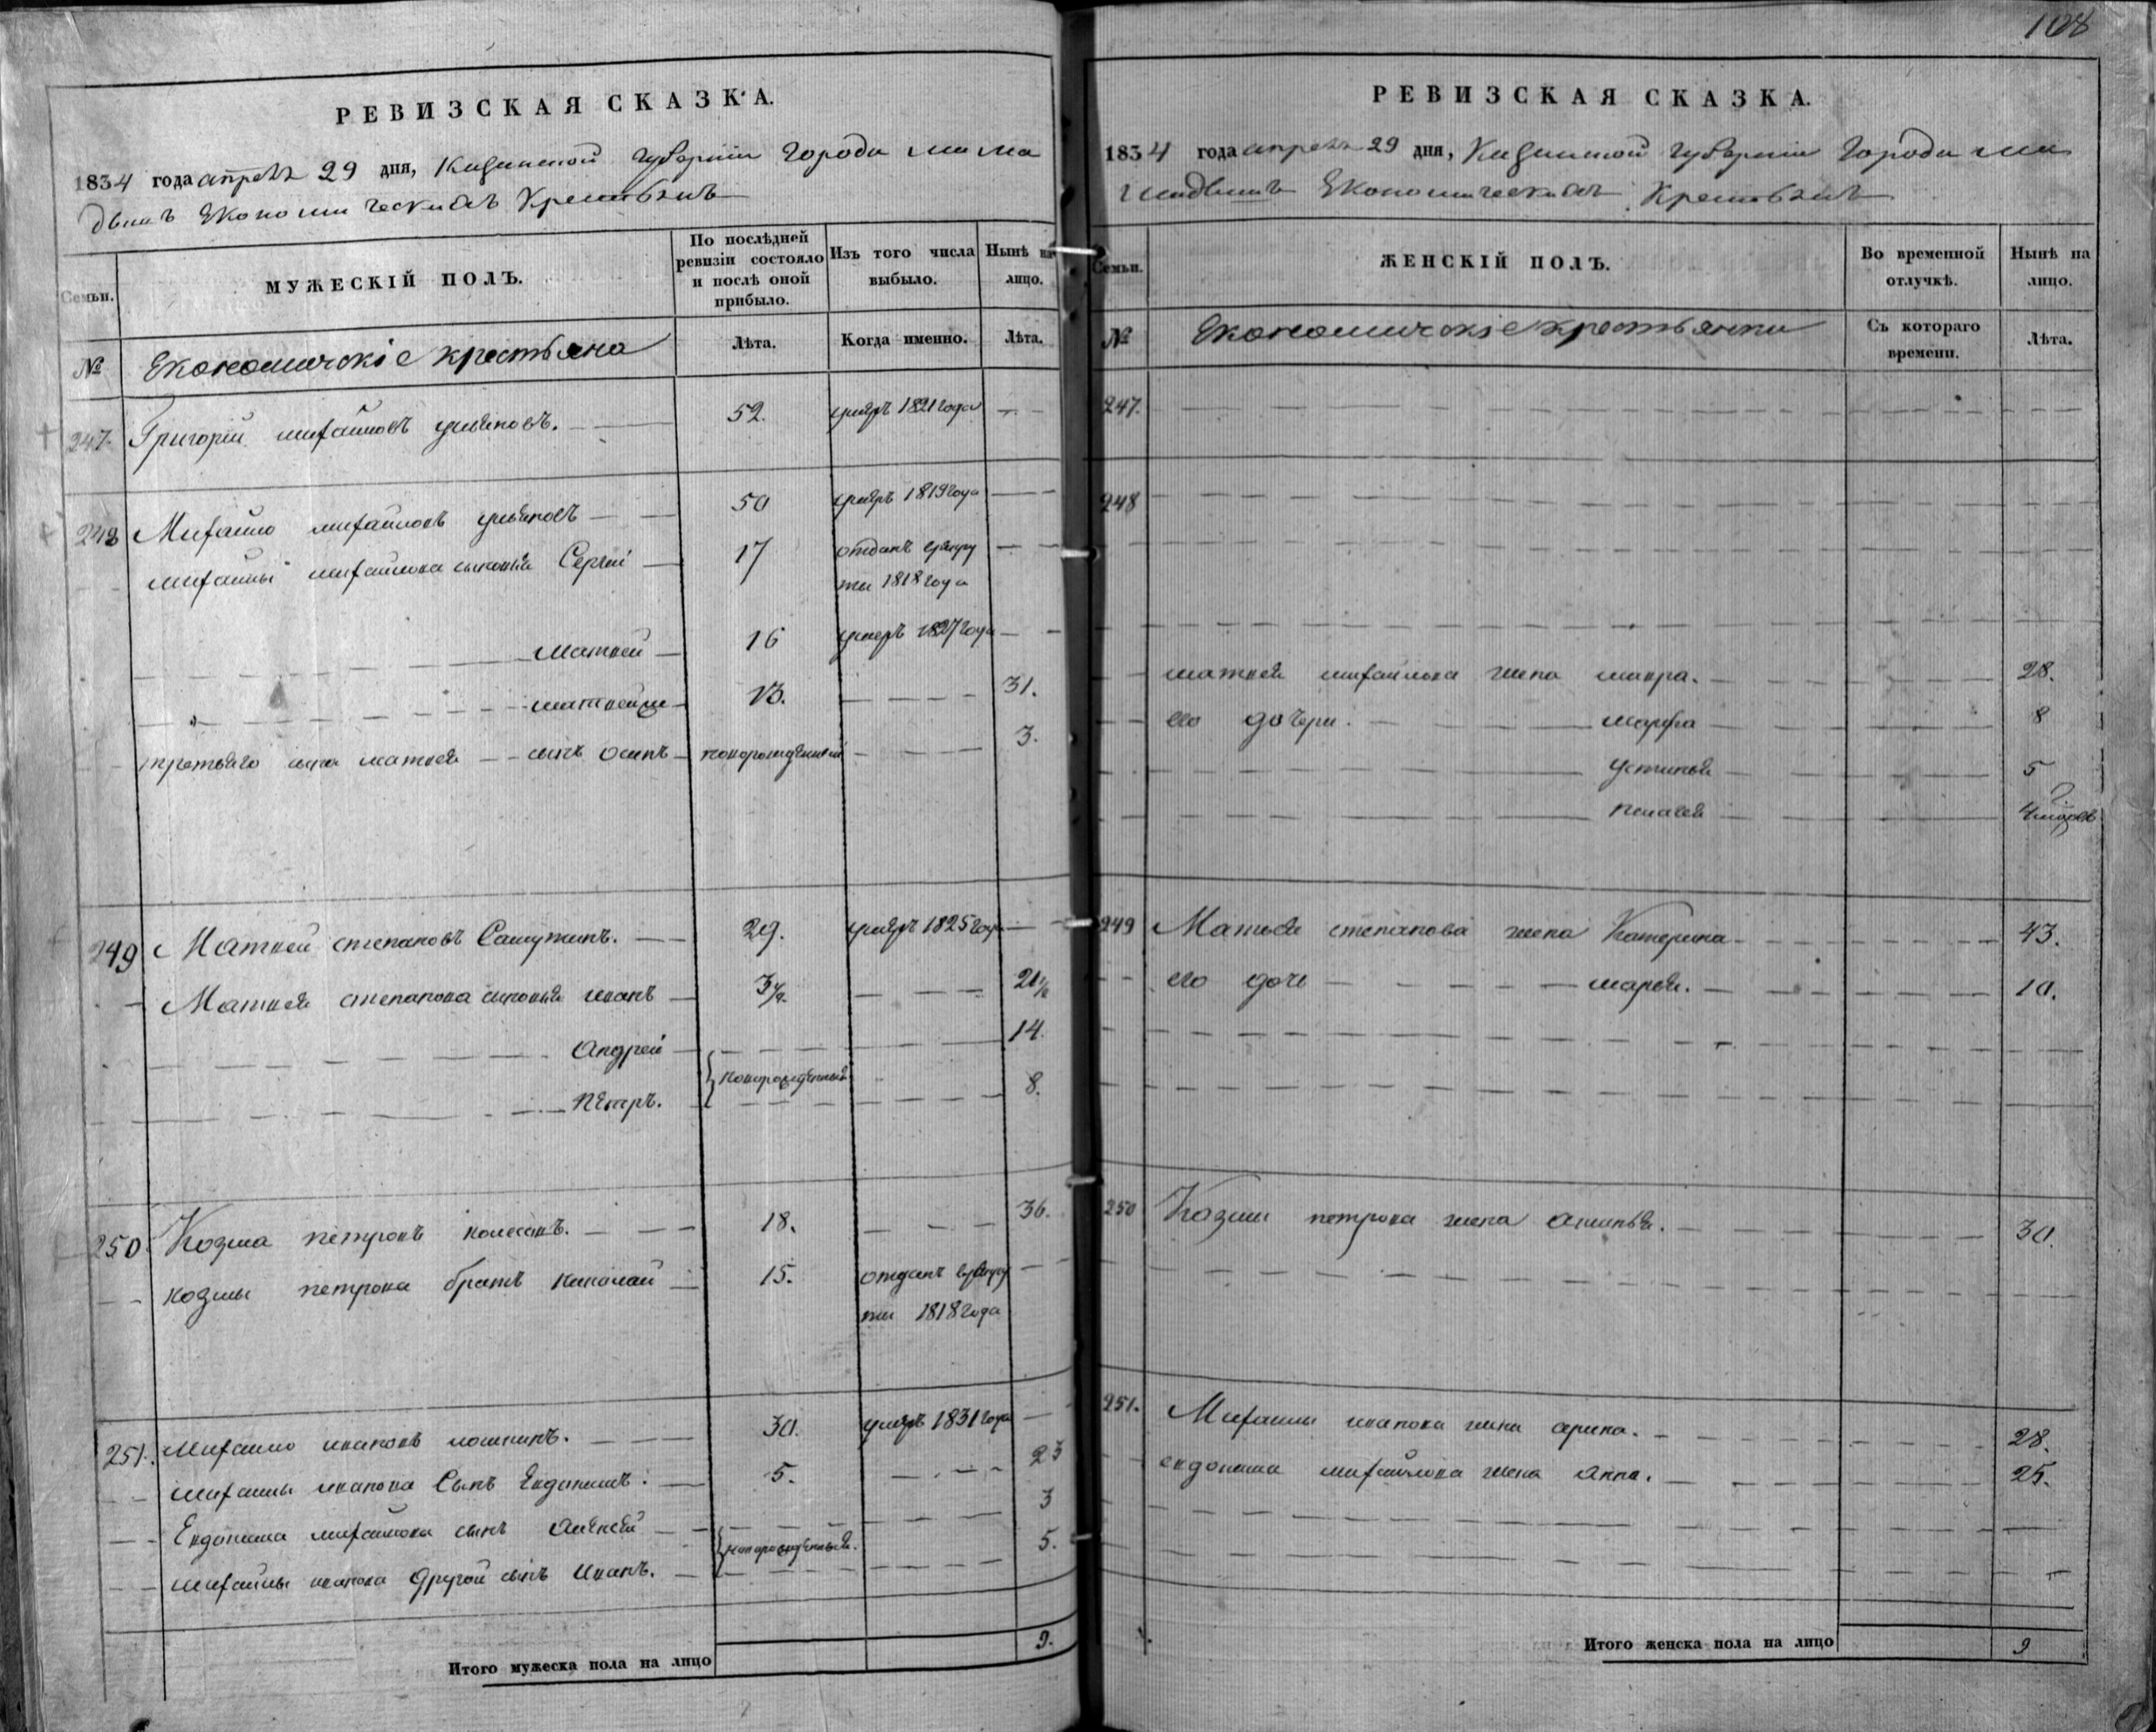 РЕВИЗСКАЯ СКАЗКА.
1834 года апреля 29 дня, Казанской губернии города мама
дышъ Економическихъ Крестьянъ
Семьи.
МУЖЕСКІЙ ПОЛЪ.
По послѣдней ревизіи состояло и послѣ оной прибыло.
Изъ того числа выбыло.
Нынѣ на лицо.
№
Економическіе крестьяна
Лѣта.
Когда именно.
Лѣта.
247. Григорій михайловъ ульяновъ. 52. умеръ 1821 года
248 Михайло михайловъ ульяновъ 50 умеръ 1819 года
михайлы михайлова сыновья Сергѣй 17 отданъ врекру
ты 1818 года
матвей 16 умеръ 1827 года
матвейже 13. 31.
третьяго сына матвея сынъ осипъ новорожденной 3.
249 Матвей степановъ 29. умеръ 1825 года
Матвея степанова сыновья иванъ 3½. 21½
Андрей 14.
новорожденныя
Петръ. 8.
250 Козма петровъ 18. 36.
козмы петрова братъ николай 15. отданъ врекру
ты 1818 года
251. Михайло ивановъ 30. умеръ 1831 года
михайлы иванова Сынъ Евдокимъ. 5. 23
Евдокима михайлова сынъ алексей 3
новорожденныя.
михайлы иванова другой сынъ иванъ. 5.
Итого мужеска пола на лицо 9.
108
РЕВИЗСКАЯ СКАЗКА.
1834 года апреля 29 дня, Казанской губернии Города ма
мадышъ Економическихъ Крестьянъ
Семьи.
ЖЕНСКІЙ ПОЛЪ.
Во временной отлучкѣ.
Нынѣ на лицо.
№
Економическіе крестьянки
Съ котораго времени.
Лѣта.
247.
248
матвея михайлова жена мавра. 28.
его дочери. марфа 8
устинья 5
пелагея
249 Матвея степанова жена Катерина 43.
его дочь марья. 10.
250 Козмы петрова жена 30.
251. Михайлы иванова жена арина. 28.
евдокима михайлова жена анна. 25.
Итого женска пола на лицо 9